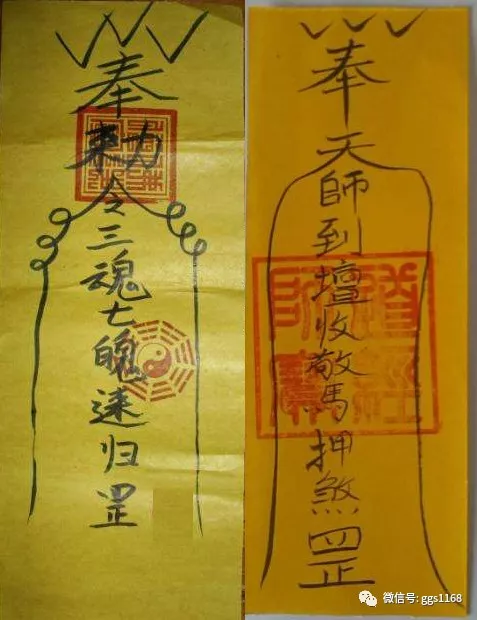 奉勅令三魂七魄速归罡
奉天師到壇收驚押煞罡
微信号: ggs1168